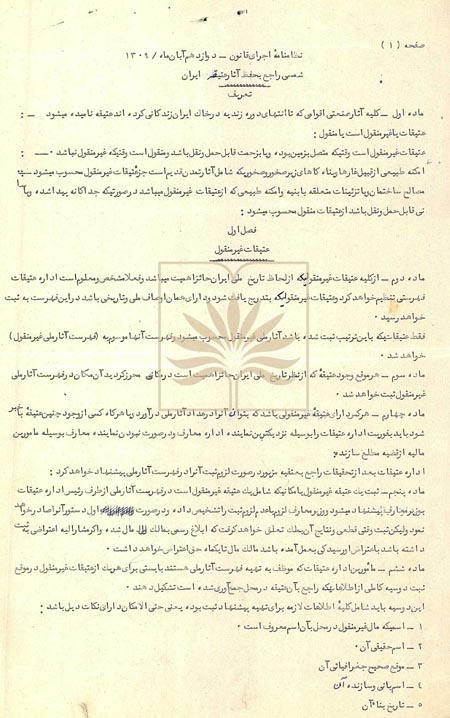 صفحه (۱)
نظامنامهٔ اجرای قانون ــ دوازدهم آبان ماه / ۱۳۰۹
شمسی راجع بحفظ آثار عتیقهٔ ایران
تعریف
ماده اول ــ کلیه آثار صنعتی اقوامی که تا انتهای دوره زندیه در خاک ایران زندگانی کرده اند عتیقه نامیده میشود ــ :
عتیقات یا غیر منقول است یا منقول :
عتیقات غیر منقول است وقتیکه متصل بزمین بوده و یا بزحمت قابل حمل و نقل باشد و منقول است وقتیکه غیر منقول نباشد ۰ــ :
امکنه طبیعی از قبیل غارها و پناه گاههای زیر صخور و صخوریکه شامل آثار تمدن قدیم است جزء عتیقات غیر منقول محسوب میشود ــ
مصالح ساختمان و یا تزئینات متعلقه بابنیه و امکنه طبیعی که از عتیقات غیر منقول میباشد در صورتیکه جدا گانه پیدا شده و یا
نی قابل حمل و نقل باشد از عتیقات منقول محسوب میشود :
فصل اول
عتیقات غیر منقول
ماده دوم ــ از کلیه عتیقات غیر منقولیکه از لحاظ تاریخ ملی ایران حائز اهمیت میباشد و فعلا مشخص و معلوم است اداره عتیقات
فهرستی تنظیم خواهد کرد و عتیقات غیر منقولیکه بتدریج یافت شود و دارای همان اوصاف ملی و تاریخی باشد در این فهرست به ثبت
خواهد رسید ۰
فقط عتیقاتیکه باین ترتیب ثبت شده باشد آثار ملی غیر منقول محسوب میشود و فهرست آنها موسوم به (فهرست آثار ملی غیر منقول)
خواهد شد ۰
ماده سوم ــ هر موقع وجود عتیقهٔ که از نظر تاریخ ملی ایران حائز اهمیت است در مکانی محرز گردید آن مکان در فهرست آثار ملی
غیر منقول ثبت خواهد شد ۰
ماده چهارم ــ هر کس دارای عتیقهٔ غیر منقولی باشد که بتوان آنرا در عداد آثار ملی در آورد و یا هر گاه کسی از وجود چنین عتیقهٔ با خبر
شود باید بفوریت اداره عتیقات را بوسیله نزدیکترین نماینده اداره معارف و در صورت نبودن نماینده معارف بوسیله مامورین
مالیه از قضیه مطلع سازند :
اداره عتیقات بعد از تحقیقات راجع بعتقیه مزبور در صورت لزوم ثبت آنرا در فهرست آثار ملی پیشنهاد خواهد کرد :
ماده پنجم ــ ثبت یک عتیقه غیر منقول یا مکانیکه شامل یک عتیقه غیر منقول است در فهرست آثار ملی از طرف رئیس اداره عتیقات
بوزیر معارف پیشنهاد میشود و وزیر معارف لزوم یا عدم لزوم ثبت را تشخیص داده و در صورت اول دستور آنرا صادر خواهد
نمود ولیکن ثبت وقتی قطعی و نتایج آن بملک تعلق خواهد گرفت که ابلاغ رسمی بمالک مال شده و اگر مشارالیه اعتراضی به ثبت
داشته باشد باعتراض او رسیدگی بعمل آمده باشد مالک مال تا یکماه حق اعتراض خواهد داشت ۰
ماده ششم ــ مأمورین اداره عتیقات که موظف به تهیه فهرست آثار ملی هستند بایستی برای هر یک از عتیقات غیر منقول در موقع
ثبت دوسیه کاملی از اطلاعاتیکه راجع بآن عتیقه در محل جمع آوری شده است تشکیل دهند ۰
این دوسیه باید شامل کلیهٔ اطلاعات لازمه برای تهیه پیشنهاد ثبت بوده یعنی حتی الامکان دارای نکات ذیل باشد :
۱ ــ اسمیکه مال غیر منقول در محل بآن اسم معروف است ۰
۲ ــ اسم حقیقی آن ۰
۳ ــ موقع صحیح جغرافیائی آن
۴ ــ اسم بانی و سازنده آن
۵ ــ تاریخ بناء آن